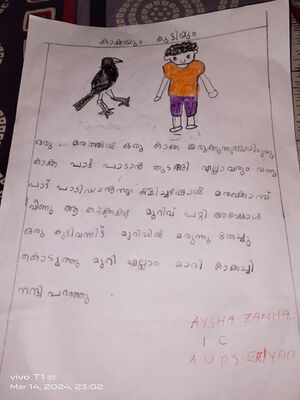 കാക്കയും കുട്ടിയും
ഒരു മരത്തിൽ ഒരു കാക്ക
കാക്ക പാട്ട് പാടാൻ തുടങ്ങി എല്ലാവരും വന്നു
പാട്ട്
വീണു ആ കാക്കക്ക് മുറിവ് പറ്റി അപ്പോൾ
ഒരു കുട്ടി വന്നിട്ട് മുറിവിൽ മരുന്നു തേച്ചു
കൊടുത്തു മുറി എല്ലാം മാറി കാക്കച്ചി
നന്ദി പറഞ്ഞു
AYSHA ZANHA
I C
A U P S ERIYAD
vivo T1
Mar 14, 2024, 23:02